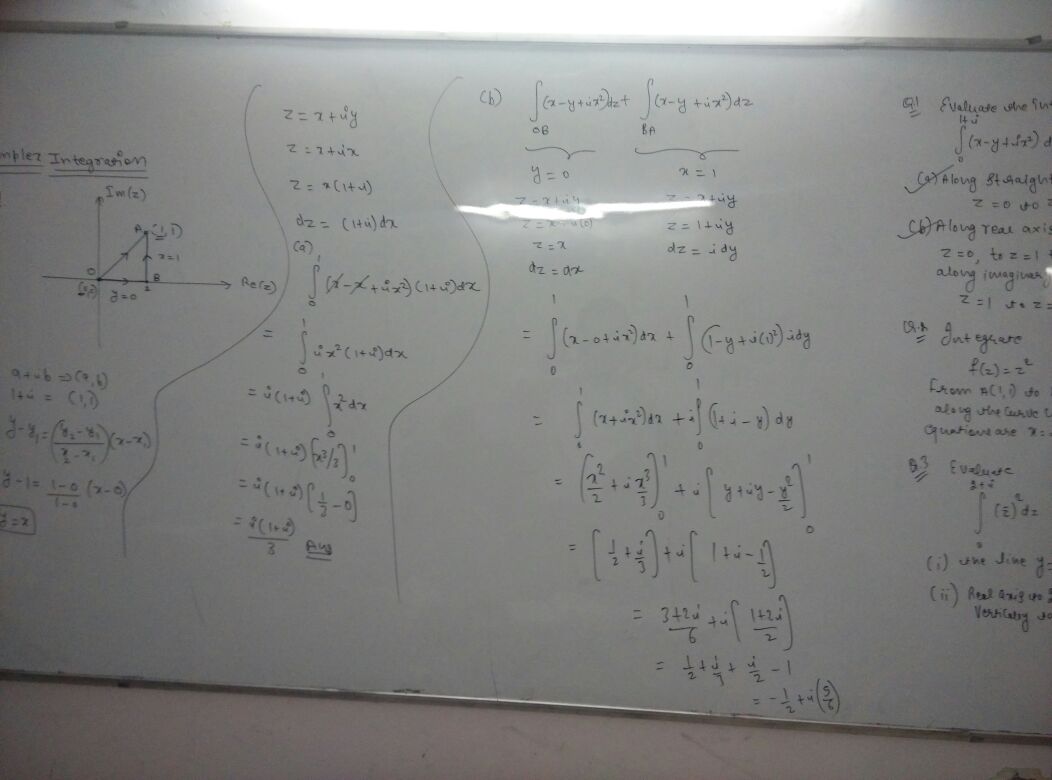 mplex Integration
Im(z)
A (1,1)
x=1
O
(0,0)
y=0
B
1
Re(z)
a+ib ⇒ (a,b)
1+i = (1,1)
y-y₁ = ((y₂-y₁)/(x₂-x₁))(x-x₁)
y-1 = (1-0)/(1-0) (x-0)
y=x
z = x+iy
z = x+ix
z = x(1+i)
dz = (1+i)dx
(a)
∫₀¹ (x-x+ix²)(1+i)dx
= ∫₀¹ ix²(1+i)dx
= i(1+i) ∫₀¹ x²dx
= i(1+i) [x³/3]₀¹
= i(1+i) [1/3 - 0]
= i(1+i)/3 Ans
(b) ∫OB (x-y+ix²)dz + ∫BA (x-y+ix²)dz
y=0 x=1
z=x+iy z=x+iy
z=x+i(0) z=1+iy
z=x dz=idy
dz=dx
= ∫₀¹ (x-0+ix²)dx + ∫₀¹ (1-y+i(1)²)idy
= ∫₀¹ (x+ix²)dx + i∫₀¹ (1+i-y)dy
= (x²/2 + i x³/3)₀¹ + i[y+iy-y²/2]₀¹
= [1/2 + i/3] + i[1+i-1/2]
= (3+2i)/6 + i[(1+2i)/2]
= 1/2 + i/3 + i/2 - 1
= -1/2 + i(5/6)
Q.1 Evaluate the
∫₀¹⁺ⁱ (x-y+ix²)
(a) Along straight
z=0 to
(b) Along real axis
z=0, to z=1
along imaginary
z=1 to z=
Q.2 Integrate
f(z)=z²
From A(1,1) to
along the curve
equations are x=
Q.3 Evaluate
∫₀²⁺ⁱ (z̄)² dz
(i) the line y=
(ii) Real axis to 2
Vertically to